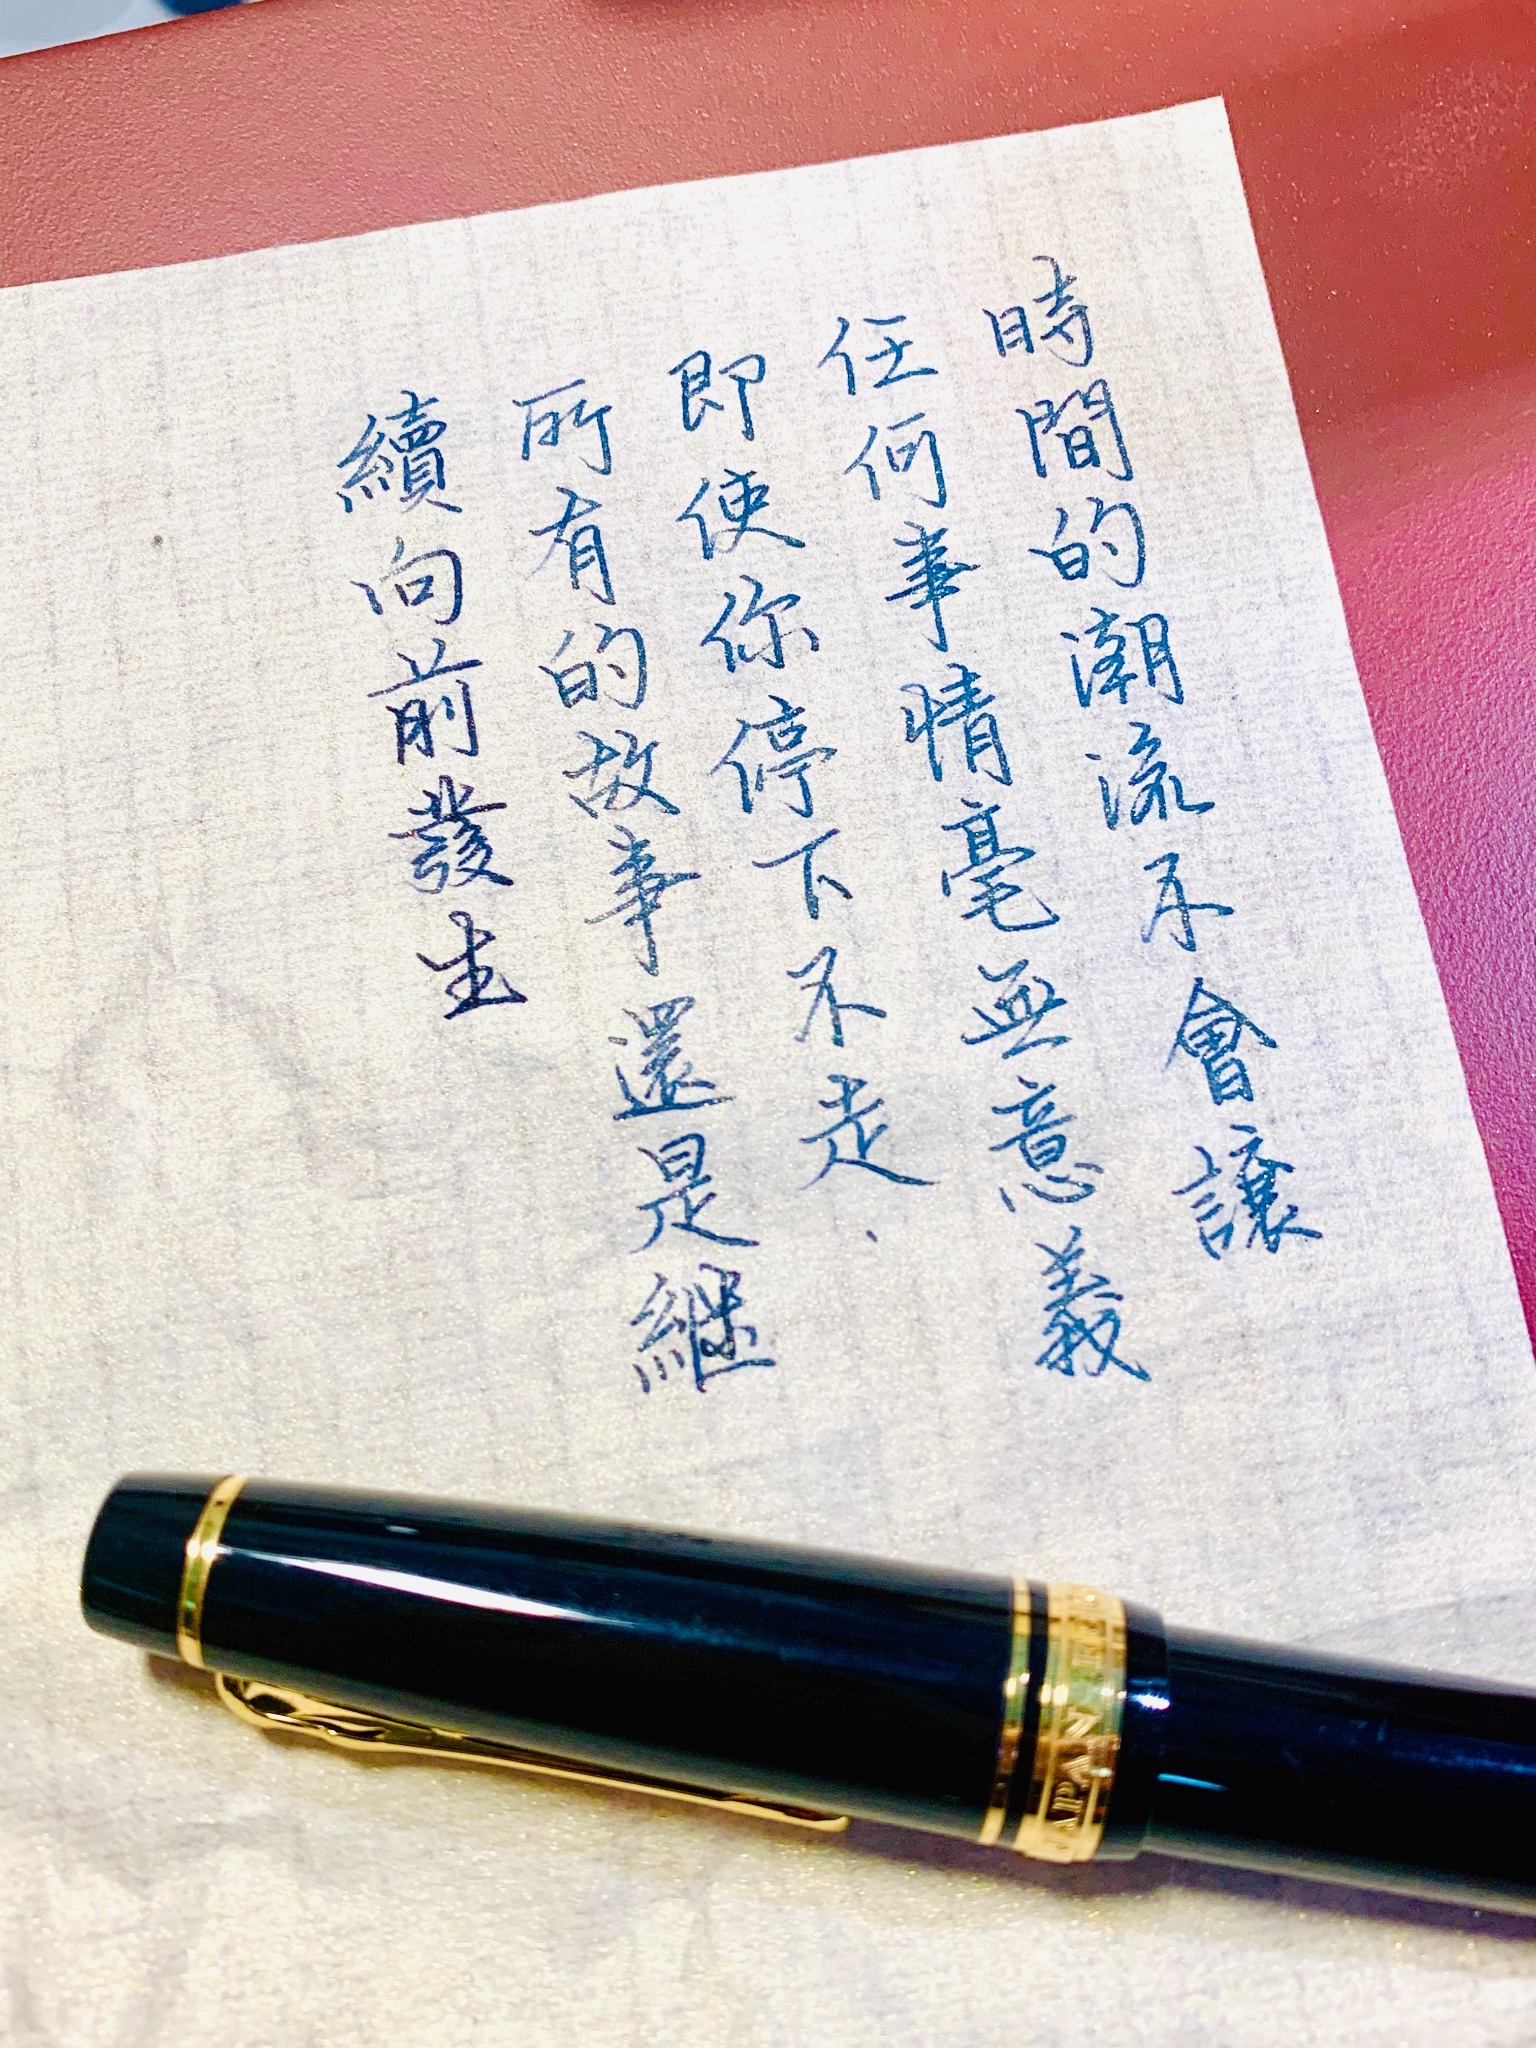 時間的潮流不會讓
任何事情毫無意義
即使你停下不走.
所有的故事還是繼
續向前發生
JAPAN